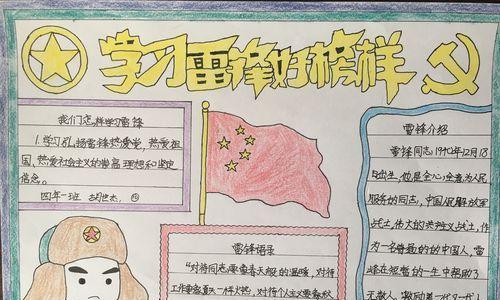 学习雷锋好榜样
我们怎样学习雷锋
1.学习弘扬雷锋热爱党,热爱祖
国、热爱社会主义的崇高理想和坚定
信念。
四年一班
雷锋介绍
雷锋同志1940年12月18
日出生,他是全心全意为人民
服务的同志,中国人民解放军
战士,伟大的共产主义战士,作
为一名普通的中国人,雷
锋在短暂的一生中帮助了
无数人
雷锋语录
“对待同志要像春天般的温暖,对待
工作要像夏天一样火热,对待个人主义要像秋